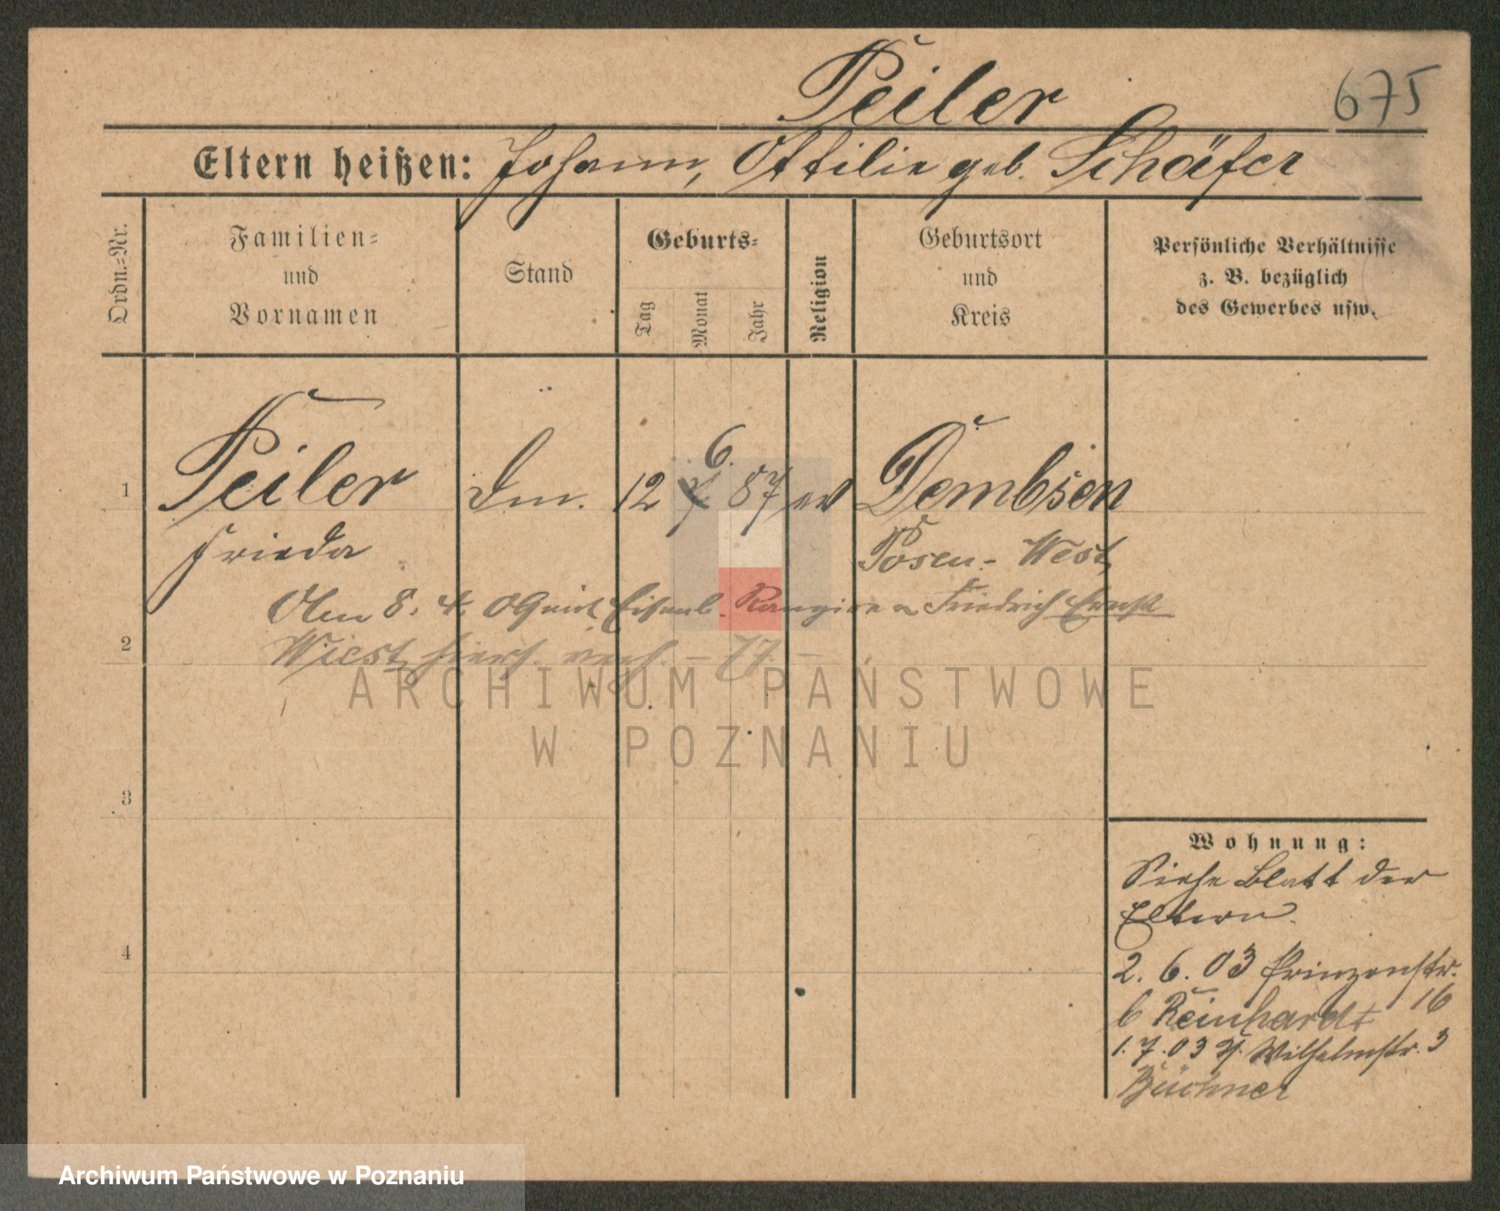 Peiler
675
Eltern heißen: Johann, Ottilie geb. Schäfer
Ordn.-Nr.
Familien-
und
Vornamen
Stand
Geburts-
Tag
Monat
Jahr
Religion
Geburtsort
und
Kreis
Persönliche Verhältnisse
z. B. bezüglich
des Gewerbes usw.
6.
1 Peiler 12 7 87 ev Dembsen
Frieda Posen-West
Am 8. 4. Eisenb. Rangirer Friedrich Ernst
2 Wiest verh. - 77 -
ARCHIWUM PAŃSTWOWE
W POZNANIU
3
4
Wohnung:
Siehe Blatt der
Eltern.
2. 6. 03 Prinzenstr.
b Reinhardt 16
1. 7. 03 Wilhelmstr. 3
Büchner
Archiwum Państwowe w Poznaniu